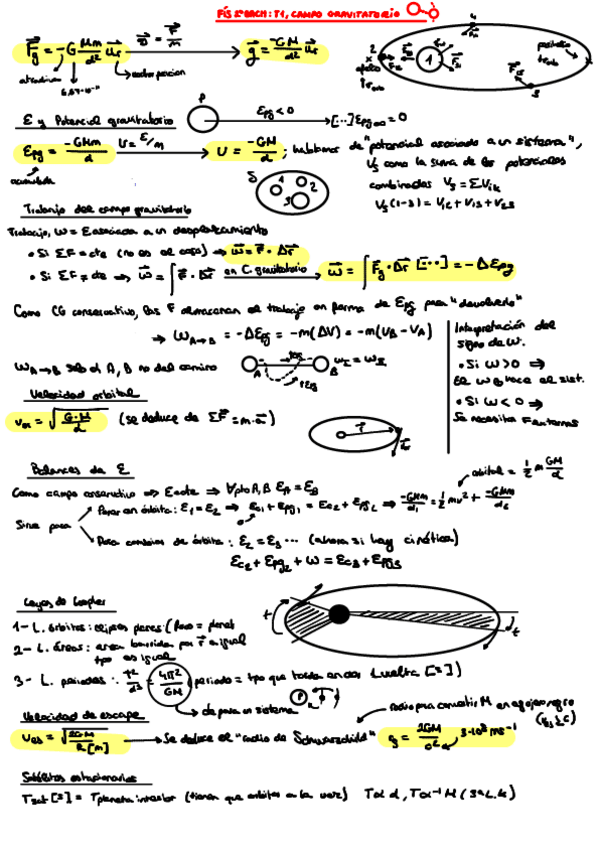 FÍS 2ºBACH: T1, CAMPO GRAVITATORIO
F⃗g = -G Mm/d² u⃗r
g⃗ = F⃗/m
g⃗ = -GM/d² u⃗r
atractiva
6,67·10⁻¹¹
vector posición
E y Potencial gravitatorio
P
Epg < 0
[...] Epg∞ = 0
Epg = -GMm/d
U = E/m
U = -GM/d ; hablamos de "potencial asociado a un sistema",
acumulada
Vs como la suma de los potenciales
combinados Vs = ΣVik
Vs(1-3) = V12 + V13 + V23
Trabajo del campo gravitatorio
Trabajo, W = E asociada a un desplazamiento
• Si ΣF = cte (no es el caso) ⇒ W = F⃗ · Δr⃗
• Si ΣF ≠ cte ⇒ W = ∫ F⃗ · Δr⃗ en C. gravitatorio W = ∫ F⃗g · Δr⃗ [...] = -ΔEpg
Como CG conservativo, las F almacenan el trabajo en forma de Epg para "devolverlo"
⇒ W A→B = -ΔEpg = -m(ΔV) = -m(VB - VA)
Interpretación del
signo de W.
• Si W > 0 ⇒
El W lo hace el sist.
• Si W < 0 ⇒
Se necesita F externas
W A→B solo d A, B no del camino
A
B
WI = WII
Velocidad orbital
vor = √(G·M/d) (se deduce de ΣF⃗ = m·a⃗)
Balances de E
Como campo conservativo ⇒ E=cte ⇒ ∀pto A, B EA = EB
orbital = 1/2 m GM/d
Sirve para
Poner en órbita: E1 = E2 ⇒ Ec1 + Epg1 = Ec2 + Epg2 ⇒ -GMm/d1 = 1/2 mv² + -GMm/d2
Para cambios de órbita: E2 = E3 ... (ahora si hay cinética)
Ec2 + Epg2 + W = Ec3 + Epg3
Leyes de Kepler
1- L. órbitas: elipses planas
2- L. áreas: área barrida por r⃗ a igual
tpo es igual
3- L. periodos: T²/d³ = 4π²/GM (periodo = tpo que tarda en dar 1 vuelta [s])
cte para un sistema
Velocidad de escape
ves = √(2GM/R[m])
Se deduce el "radio de Schwarzschild"
radio para convertir M en agujero negro
= 2GM/c²
3·10⁸ ms⁻¹
Satélites estacionarios
Tsat [s] = Tplaneta interior (tienen que orbitar a la vez) T α d, T α⁻¹ M (3ª L.K)